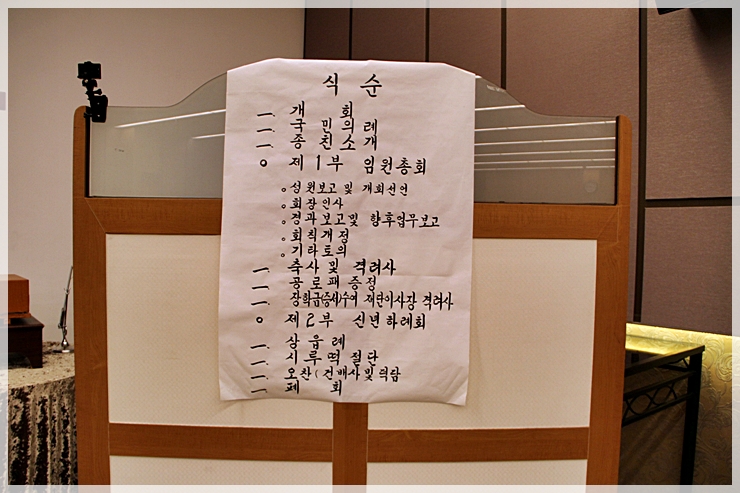 식 순
一. 개 회
一. 국민의례
一. 종친소개
o 제1부 임원총회
o 성원보고 및 개회선언
o 회장인사
o 경과보고및 향후업무보고
o 회칙개정
o 기타토의
一. 축사 및 격려사
一. 공로패증정
一. 장학금(증서)수여 재단이사장 격려사
o 제2부 신년하례회
一. 상읍례
一. 시루떡 절단
一. 오찬(건배사및덕담
一. 폐 회